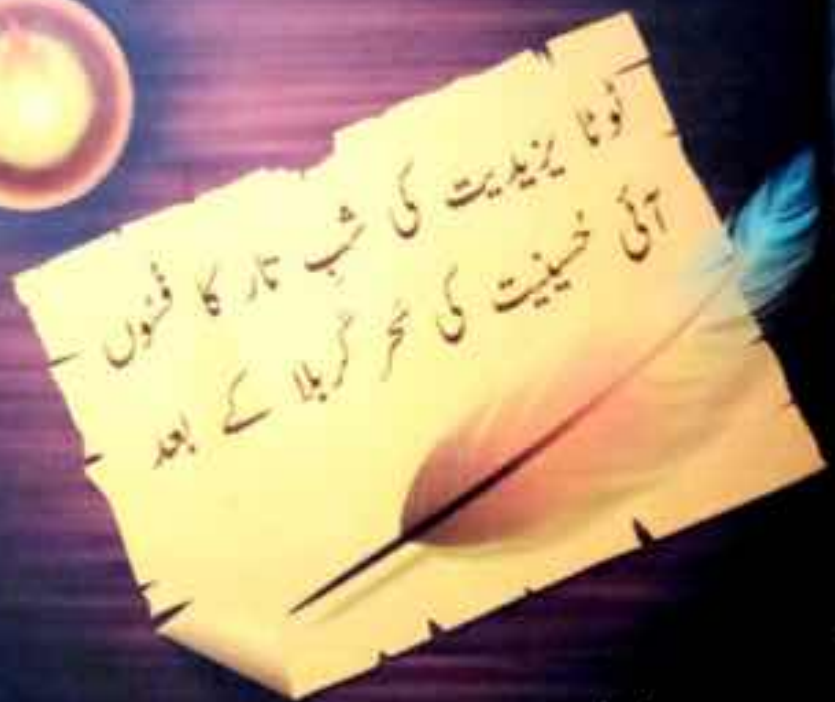 ٹوٹا یزیدیت کی شبِ تار کا فسُوں
آئی حُسینیت کی سَحر کربلا کے بعد